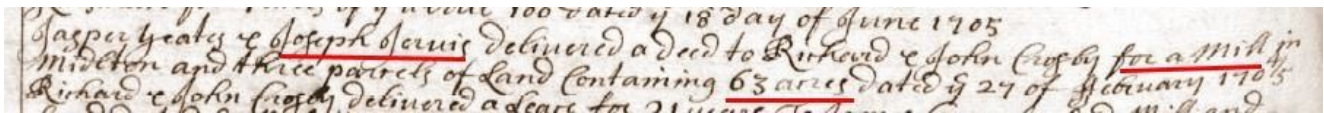 of ye above 100 dated ye 18 day of June 1705
Jasper Yeates & Joseph Jervis delivered a deed to Richard & John Crosby for a Mill in
Midlton and three parcels of Land Containing 63 acres dated ye 27 of February 1705
Richard & John Crosby delivered a Lease for 21 years to